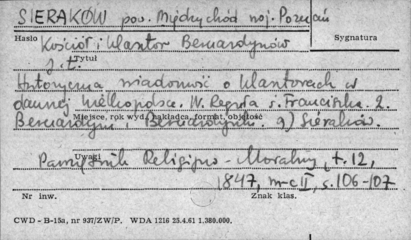 SIERAKÓW pow. Międzychód woj. Poznań
Hasło Sygnatura
Kościół i klasztor Bernardynów
Tytuł
j.t.
Historyczna wiadomość o klasztorach w
dawnej Wielkopolsce. IV. Reguła s. Franciszka. 2.
Miejsce, rok wyd., nakładca, format, objętość
Bernardyni i Bernardynki. 9) Siéraków.
Uwagi
Pamiętnik Religijno-Moralny, t. 12,
1847, s. 106-107
Nr inw. Znak klas.
CWD - B-15a, nr 937/ZW/P. WDA 1216 25.4.61 1,380.000.